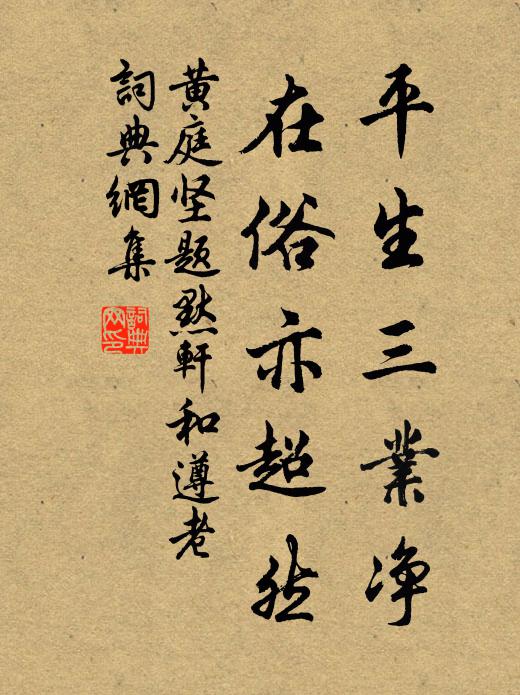 平生三業净
在俗亦超然
黄庭坚题默軒和遵老
詞典網集
詞典网印